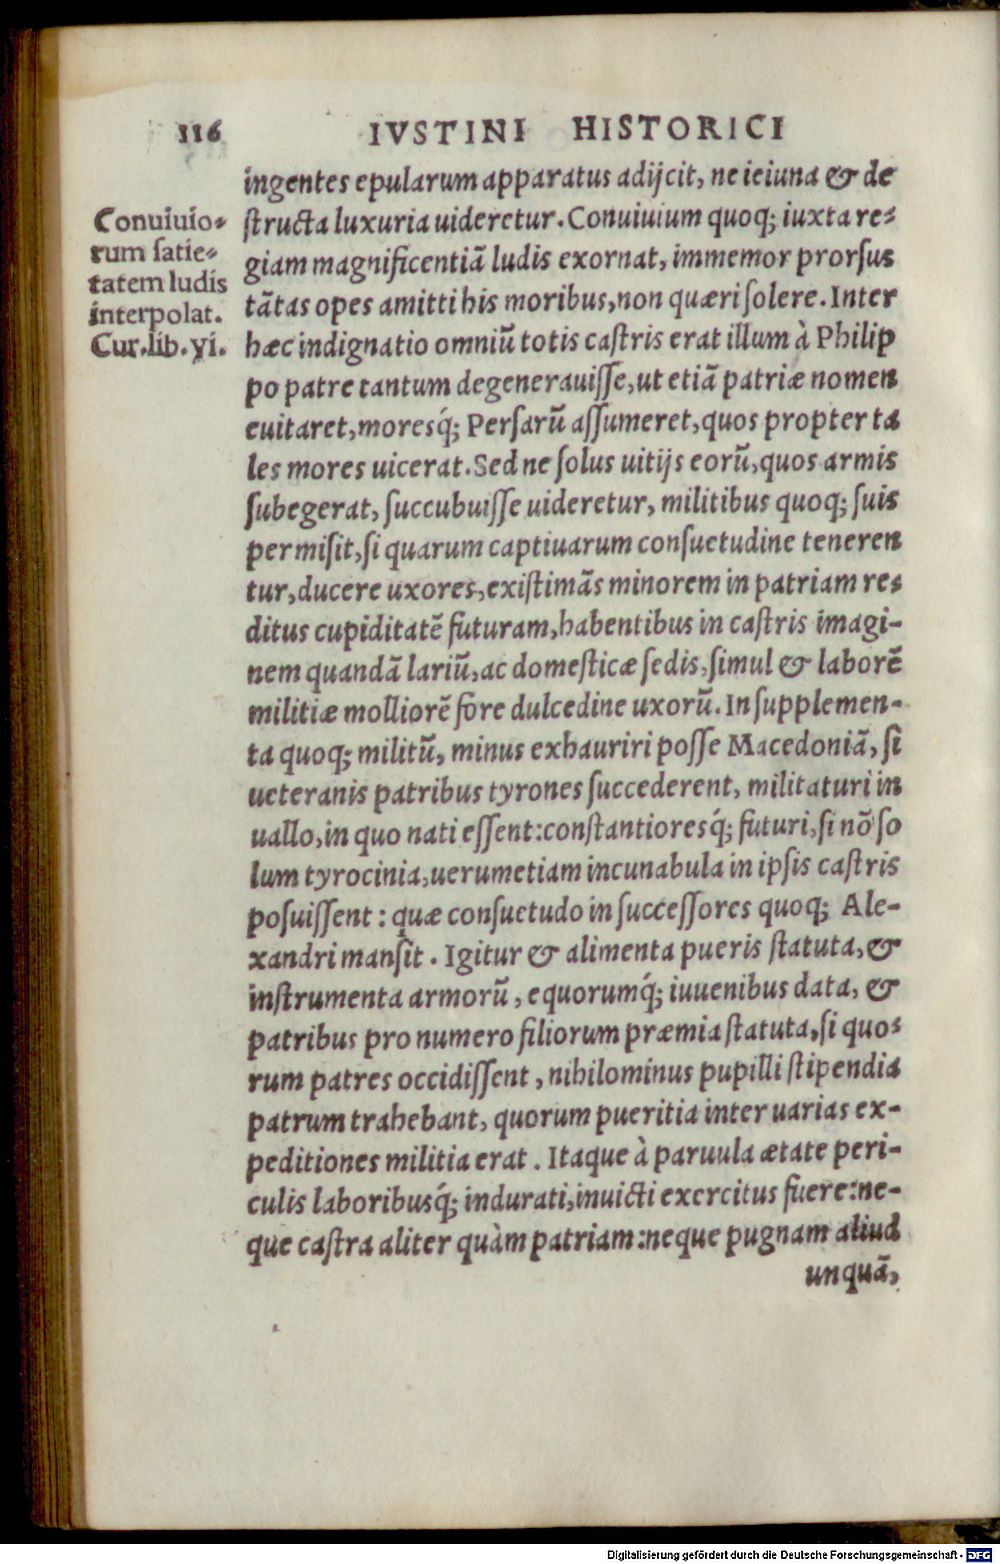 116 IVSTINI HISTORICI
ingentes epularum apparatus adijcit, ne ieiuna & de
ſtructa luxuria uideretur. Conuiuium quoq; iuxta re⸗
giam magnificentiã ludis exornat, immemor prorſus
tãtas opes amitti his moribus, non quæri ſolere. Inter
hæc indignatio omniũ totis caſtris erat illum à Philip
po patre tantum degenerauiſſe, ut etiã patriæ nomen
euitaret, moresq́; Perſarũ aſſumeret, quos propter ta
les mores uicerat. Sed ne ſolus uitijs eorũ, quos armis
ſubegerat, ſuccubuiſſe uideretur, militibus quoq; ſuis
permiſit, ſi quarum captiuarum conſuetudine teneren
tur, ducere uxores, exiſtimãs minorem in patriam re⸗
ditus cupiditatẽ futuram, habentibus in caſtris imagi-
nem quandã lariũ, ac domeſticæ ſedis, ſimul & laborẽ
militiæ molliorẽ fore dulcedine uxorũ. In ſupplemen-
ta quoq; militũ, minus exhauriri poſſe Macedoniã, ſi
ueteranis patribus tyrones ſuccederent, militaturi in
uallo, in quo nati eſſent: conſtantioresq́; futuri, ſi nõ ſo
lum tyrocinia, uerumetiam incunabula in ipſis caſtris
poſuiſſent: quæ conſuetudo in ſucceſſores quoq; Ale-
xandri manſit. Igitur & alimenta pueris ſtatuta, &
inſtrumenta armorũ, equorumq́; iuuenibus data, &
patribus pro numero filiorum præmia ſtatuta, ſi quo⸗
rum patres occidiſſent, nihilominus pupilli ſtipendia
patrum trahebant, quorum pueritia inter uarias ex-
peditiones militia erat. Itaque à paruula ætate peri-
culis laboribusq́; indurati, inuicti exercitus fuere: ne-
que caſtra aliter quàm patriam: neque pugnam aliud
unquã,
Conuiuio⸗
rum ſatie⸗
tatem ludis
interpolat.
Cur. lib. vi.
Digitalisierung gefördert durch die Deutsche Forschungsgemeinschaft - DFG